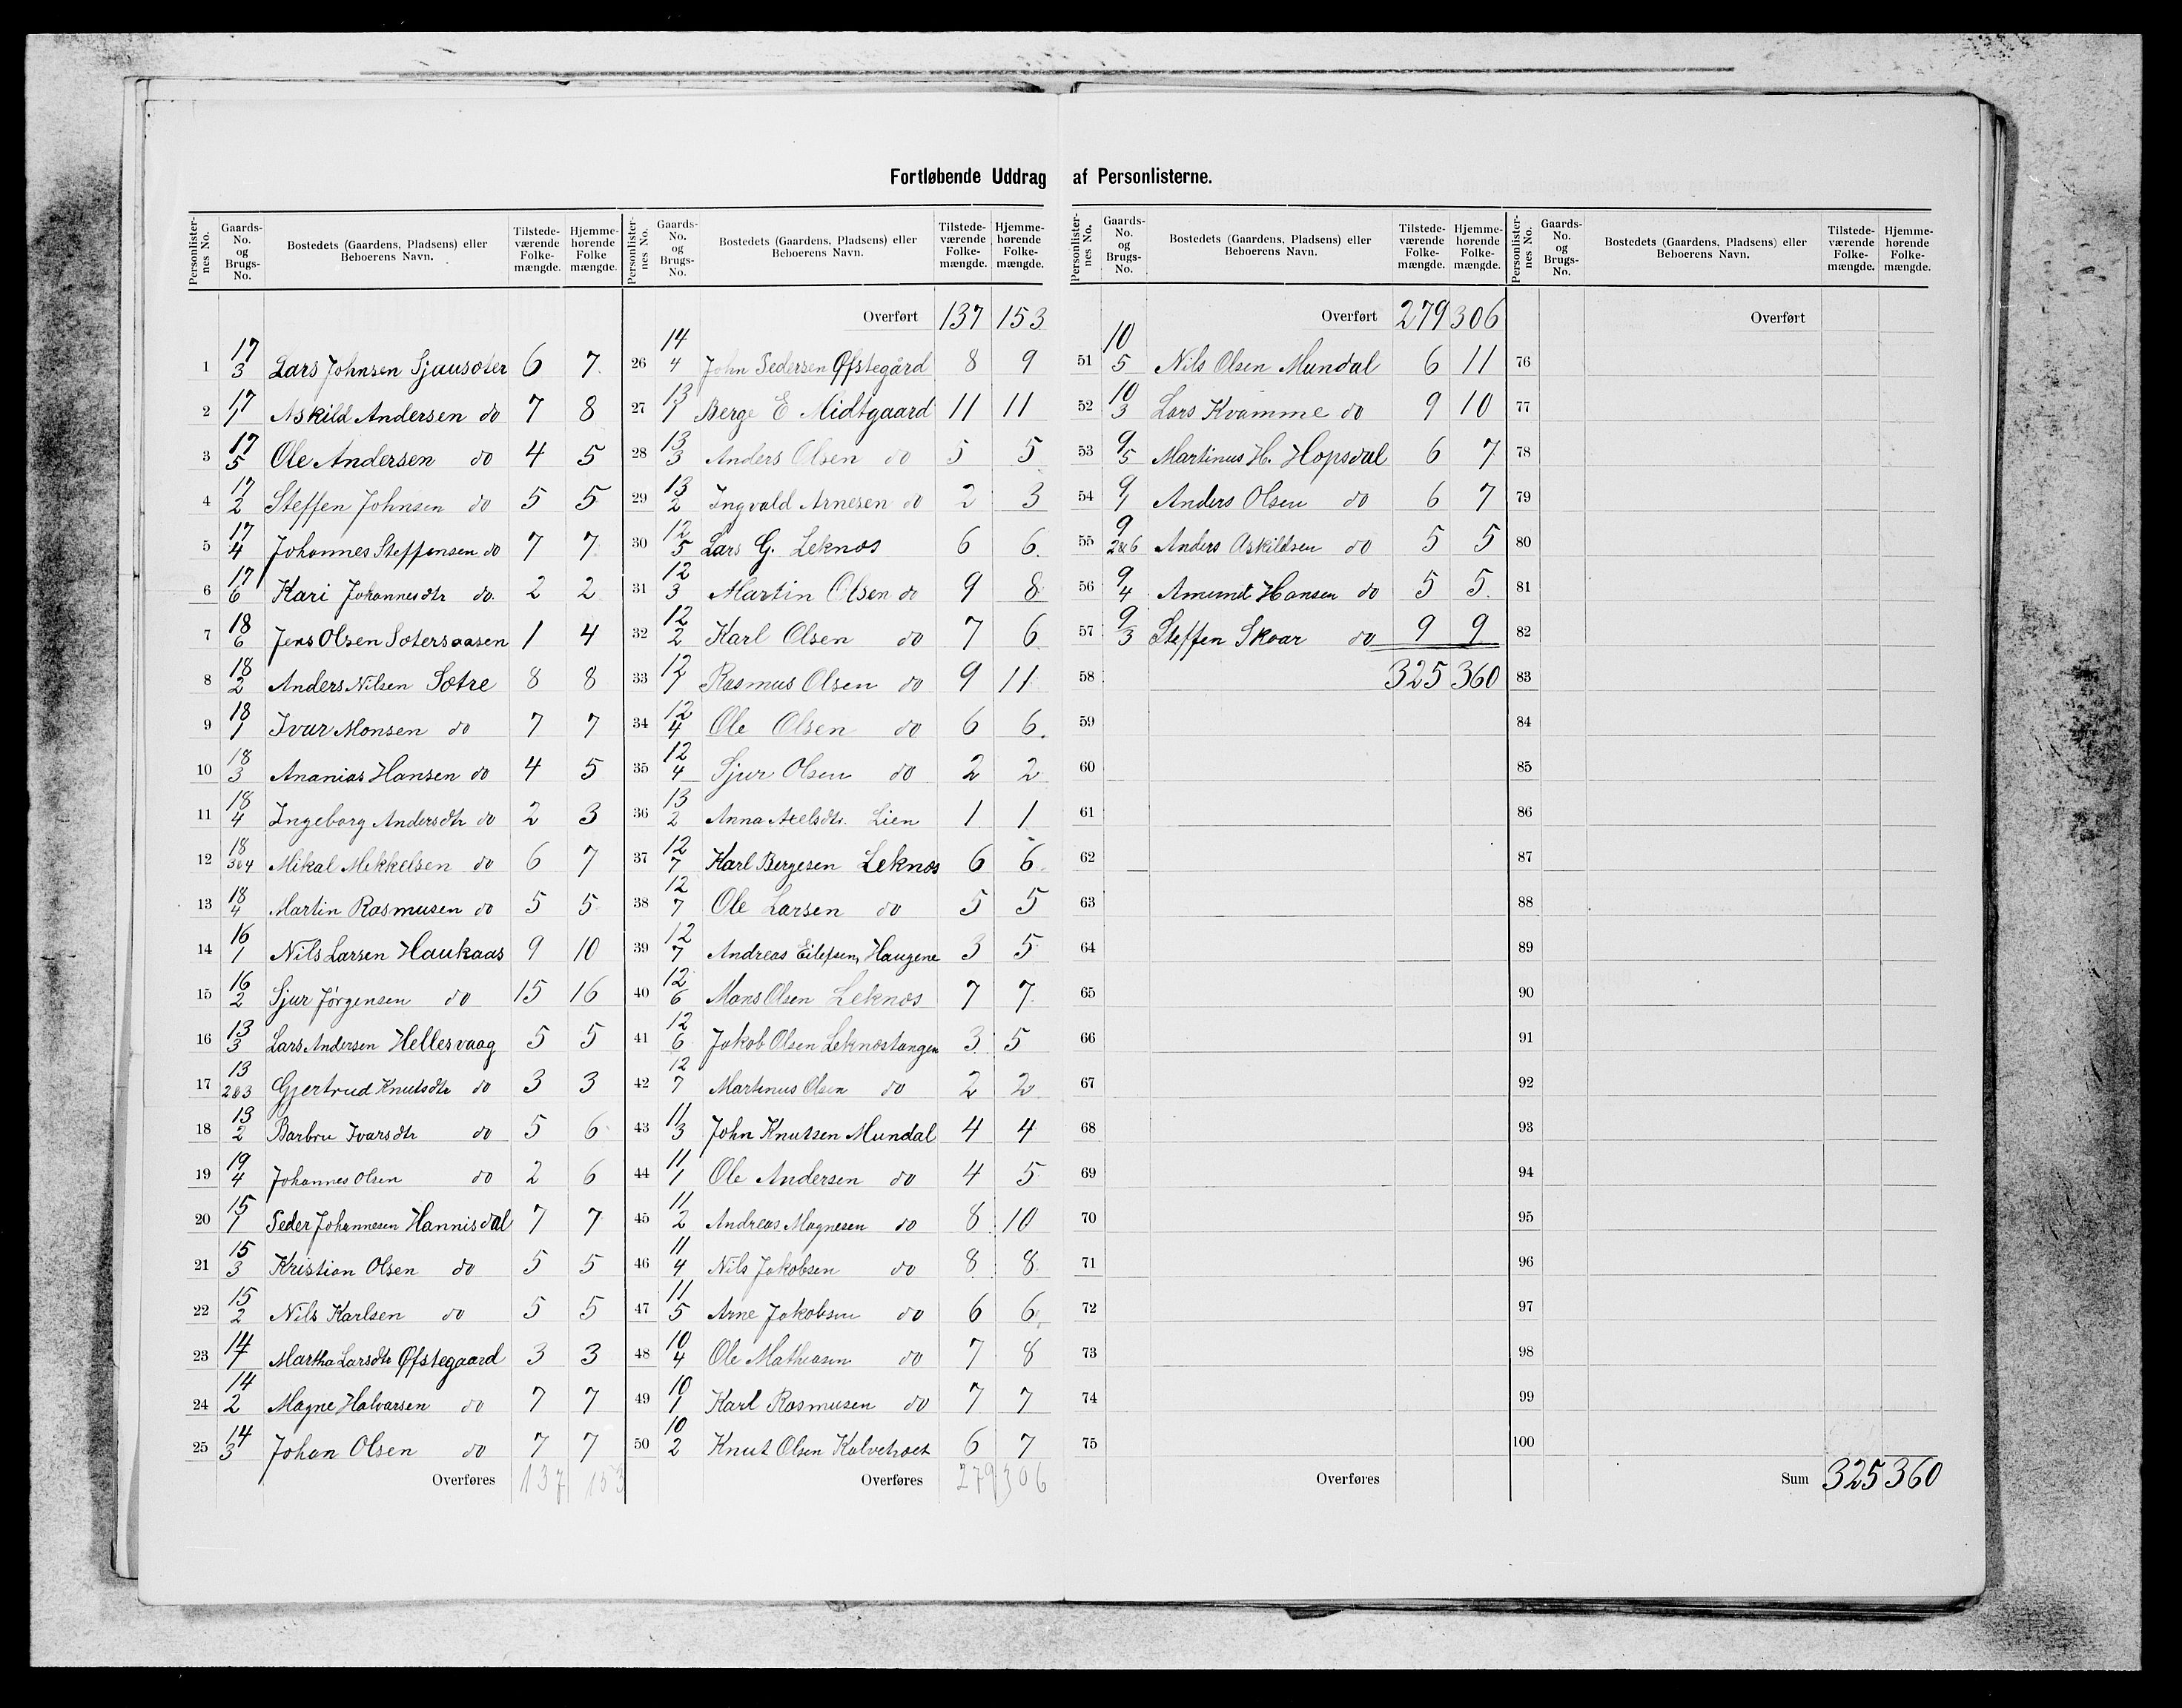 Fortløbende Uddrag af Personlisterne.
Personlister-nes No. | Gaards-No. og Brugs-No. | Bostedets (Gaardens, Pladsens) eller Beboerens Navn. | Tilstede-værende Folke-mængde. | Hjemme-hørende Folke mængde.
1 | 17/3 | Lars Johnsen Sjausæter | 6 | 7
2 | 17/1 | Askild Andersen do | 7 | 8
3 | 17/5 | Ole Andersen do | 4 | 5
4 | 17/2 | Steffen Johnsen do | 5 | 5
5 | 17/4 | Johannes Steffensen do | 7 | 7
6 | 17/6 | Kari Johannesdtr do. | 2 | 2
7 | 18/6 | Jens Olsen Sætersaasen | 1 | 4
8 | 18/2 | Anders Nilsen Sætre | 8 | 8
9 | 18/1 | Ivar Monsen do | 7 | 7
10 | 18/3 | Ananias Hansen do | 4 | 5
11 | 18/4 | Ingeborg Andersdtr do | 2 | 3
12 | 18/3&4 | Mikal Mikkelsen do | 6 | 7
13 | 18/4 | Martin Rasmusen do | 5 | 5
14 | 16/1 | Nils Larsen Haukaas | 9 | 10
15 | 16/2 | Sjur Jørgensen do | 15 | 16
16 | 13/3 | Lars Andersen Hellesvaag | 5 | 5
17 | 13/2&3 | Gjertrud Knutsdtr do | 3 | 3
18 | 13/2 | Barbru Ivarsdtr do | 5 | 6
19 | 19/4 | Johannes Olsen do | 2 | 6
20 | 15/1 | Peder Johannesen Hannisdal | 7 | 7
21 | 15/3 | Kristian Olsen do | 5 | 5
22 | 15/2 | Nils Karlsen do | 5 | 5
23 | 14/1 | Martha Larsdtr Øfstegaard | 3 | 3
24 | 14/2 | Magne Halvarsen do | 7 | 7
25 | 14/3 | Johan Olsen do | 7 | 7
Overføres 137 153
Personlister-nes No. | Gaards-No. og Brugs-No. | Bostedets (Gaardens, Pladsens) eller Beboerens Navn. | Tilstede-værende Folke-mængde. | Hjemme-hørende Folke-mængde.
Overført 137 153
26 | 14/4 | John Pedersen Øfstegård | 8 | 9
27 | 13/1 | Berge E Midtgaard | 11 | 11
28 | 13/3 | Anders Olsen do | 5 | 5
29 | 13/2 | Ingvald Arnesen do | 2 | 3
30 | 12/5 | Lars G. Leknes | 6 | 6.
31 | 12/3 | Martin Olsen do | 9 | 8
32 | 12/2 | Karl Olsen do | 7 | 6
33 | 12/1 | Rasmus Olsen do | 9 | 11
34 | 12/4 | Ole Olsen do | 6 | 6.
35 | 12/4 | Sjur Olsen do | 2 | 2
36 | 13/2 | Anna Axelsdtr. Lien | 1 | 1
37 | 12/7 | Karl Bergesen Leknes | 6 | 6.
38 | 12/7 | Ole Larsen do | 5 | 5
39 | 12/7 | Andreas Eilefsen, Haugene | 3 | 5
40 | 12/6 | Mons Olsen Leknes | 7 | 7
41 | 12/6 | Jakob Olsen Leknestangen | 3 | 5
42 | 12/7 | Martinus Olsen do | 2 | 2
43 | 11/3 | John Knutsen Mundal | 4 | 4
44 | 11/1 | Ole Andersen do | 4 | 5
45 | 11/2 | Andreas Magnesen do | 8 | 10
46 | 11/4 | Nils Jakobsen do | 8 | 8
47 | 11/5 | Arne Jakobsen do | 6 | 6
48 | 10/4 | Ole Mathiasen do | 7 | 8
49 | 10/1 | Karl Rasmusen do | 7 | 7
50 | 10/2 | Knut Olsen Kalvetræet | 6 | 7
Overføres 279 306
Personlister-nes No. | Gaards-No. og Brugs-No. | Bostedets (Gaardens, Pladsens) eller Beboerens Navn. | Tilstede-værende Folke-mængde. | Hjemme-hørende Folke-mængde.
Overført 279 306
51 | 10/5 | Nils Olsen Mundal | 6 | 11
52 | 10/3 | Lars Kvamme do | 9 | 10
53 | 9/5 | Martinus H. Hopsdal | 6 | 7
54 | 9/1 | Anders Olsen do | 6 | 7
55 | 9/2&6 | Anders Askildsen do | 5 | 5
56 | 9/4 | Amund Hansen do | 5 | 5.
57 | 9/3 | Steffen Skaar do | 9 | 9
58 | 325 | 360
59
60
61
62
63
64
65
66
67
68
69
70
71
72
73
74
75
Overføres
Personlister-nes No. | Gaards-No. og Brugs-No. | Bostedets (Gaardens, Pladsens) eller Beboerens Navn. | Tilstede-værende Folke-mængde. | Hjemme-hørende Folke-mængde.
Overført
76
77
78
79
80
81
82
83
84
85
86
87
88
89
90
91
92
93
94
95
96
97
98
99
100
Sum 325 360